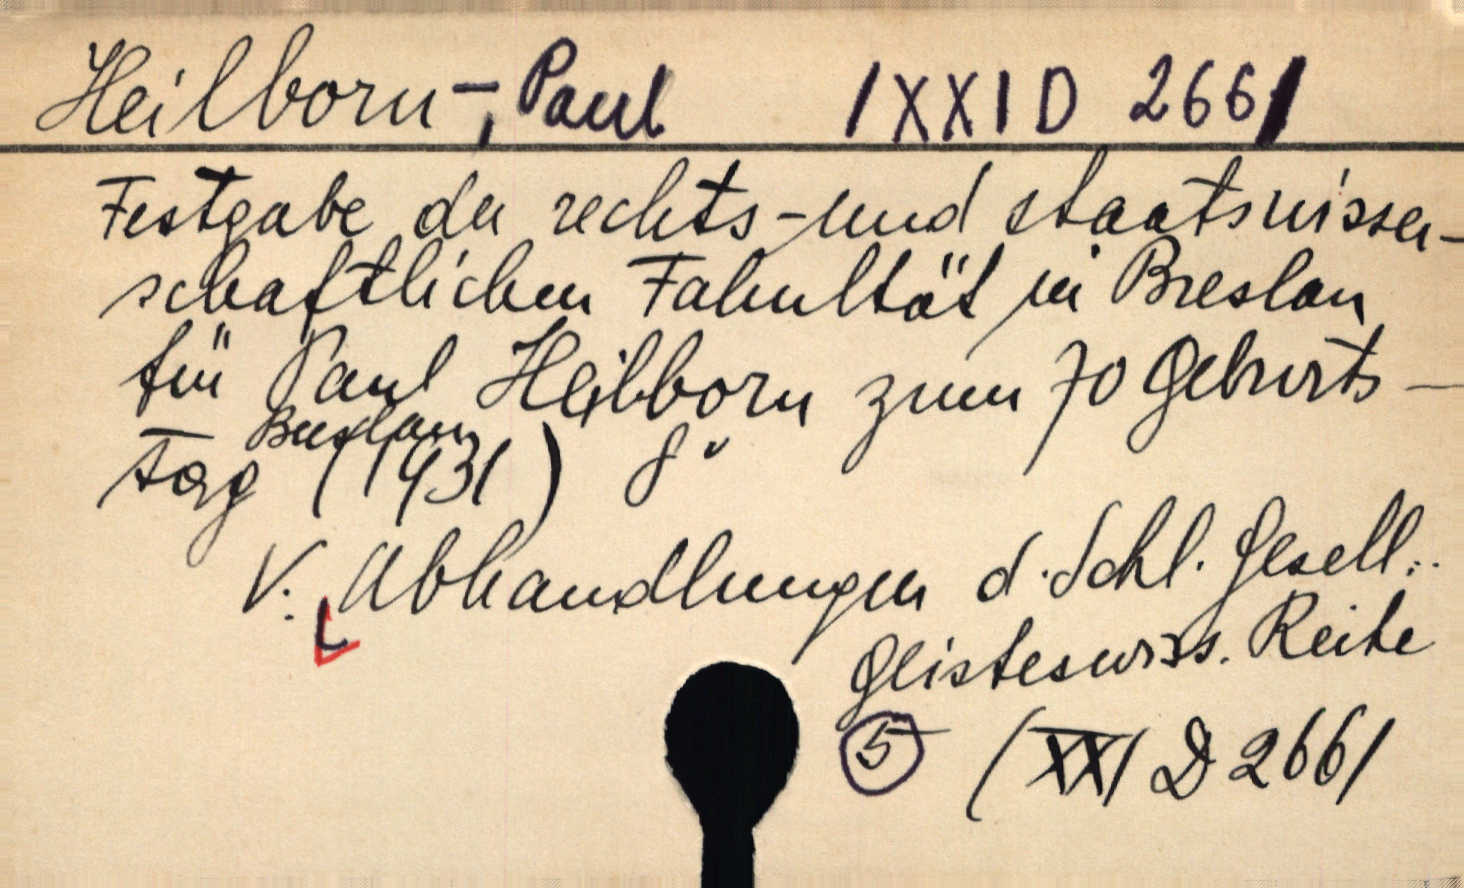 Heilborn-, Paul /XXI D 266/
Festgabe der rechts-und staatswissen-
schaftlichen Fakultät in Breslau
für Paul Heilborn zum 70 Geburts-
tag Breslau (1931) 8°
V. Abhandlungen d. Schl. Gesell..
Geisteswiss. Reihe
5 (XXI D 266/